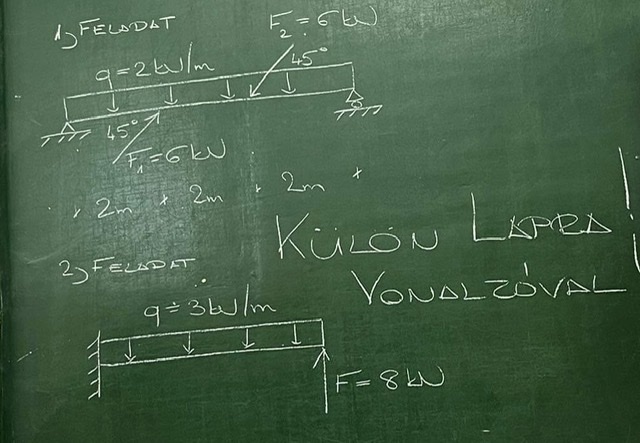 1) FELADAT
F₂ = 6 kN
q = 2 kN/m
45°
45°
F₁ = 6 kN
2m 2m 2m
KÜLÖN LAPRA
VONALZÓVAL
2) FELADAT
q = 3 kN/m
F = 8 kN